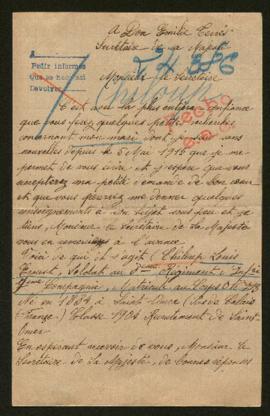 A Don Emilio
Secrétaire de sa Majesté
A
Pedir informes
Que se hagan así
Devolver
Monsieur le Secrétaire
C'est avec la plus entière confiance
que vous ferez quelques petites recherches
concernant mon mari dont je suis sans
nouvelles depuis le 5 Mai 1915 que je me
permet de vous écrire et j'espère que vous
accepterez ma petite demande de bon cœur
et que vous pourrez me donner quelques
renseignements à son sujet sous peu et je
viens, Monsieur le Secrétaire de Sa Majesté
vous en remercier à l'avance.
Voici de qui il s'agit Philipp Louis
Soldat au Régiment
Compagnie, Matricule au Corps
Né en 1884 à Saint-Omer (Pas de Calais
(France.) Classe 1904 Recrutement de Saint-
Omer
En espérant recevoir de vous, Monsieur le
Secrétaire de Sa Majesté, de bonnes réponses